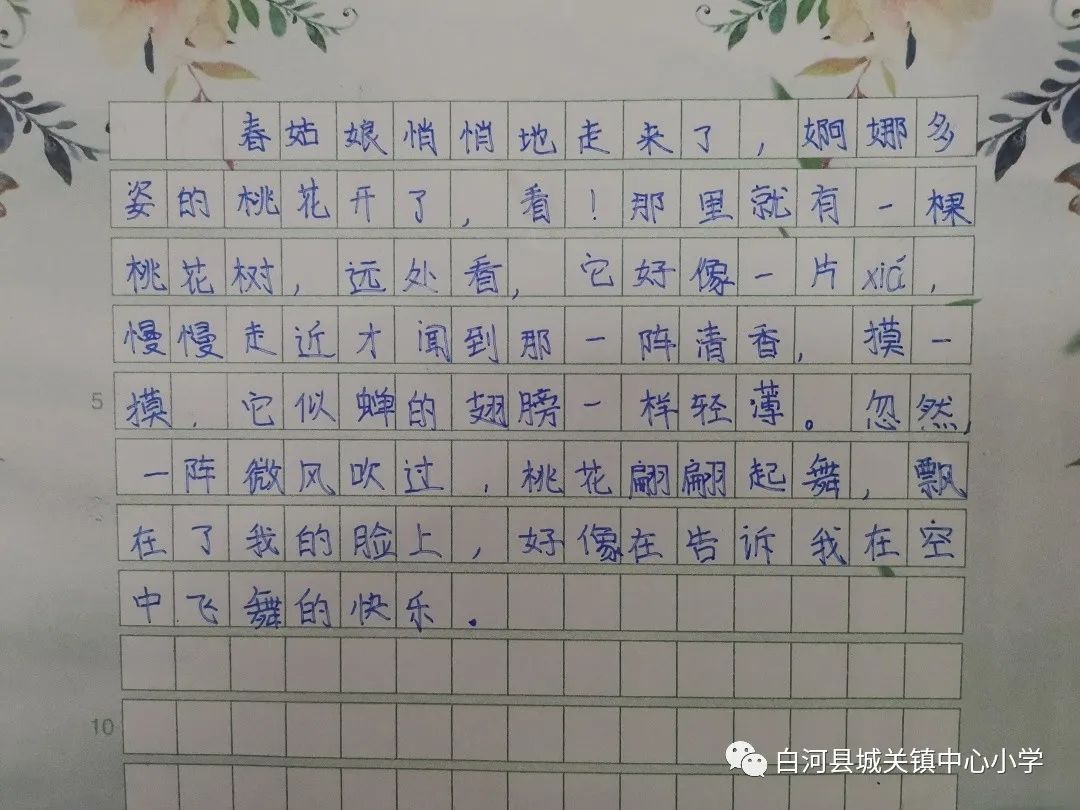 春姑娘悄悄地走来了，婀娜多
姿的桃花开了，看！那里就有一棵
桃花树，远处看，它好像一片xiá，
慢慢走近才闻到那一阵清香，摸一
5 摸，它似蝉的翅膀一样轻薄。忽然，
一阵微风吹过，桃花翩翩起舞，飘
在了我的脸上，好像在告诉我在空
中飞舞的快乐。
10
白河县城关镇中心小学